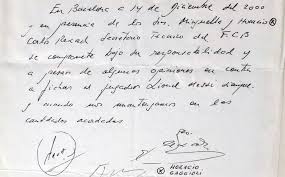 En Barcelona a 14 de diciembre del 2000
y en presencia de los Srs. Minguella y Horacio Ⓧ
Carlos Rexach Secretario Técnico del F.C.B
se compromete bajo su responsabilidad y
a pesar de algunas opiniones en contra
a fichar al jugador Lionel Messi siempre
y cuando nos mantengamos en las
cantidades acordadas.
Ⓧ HORACIO
GAGGIOLI